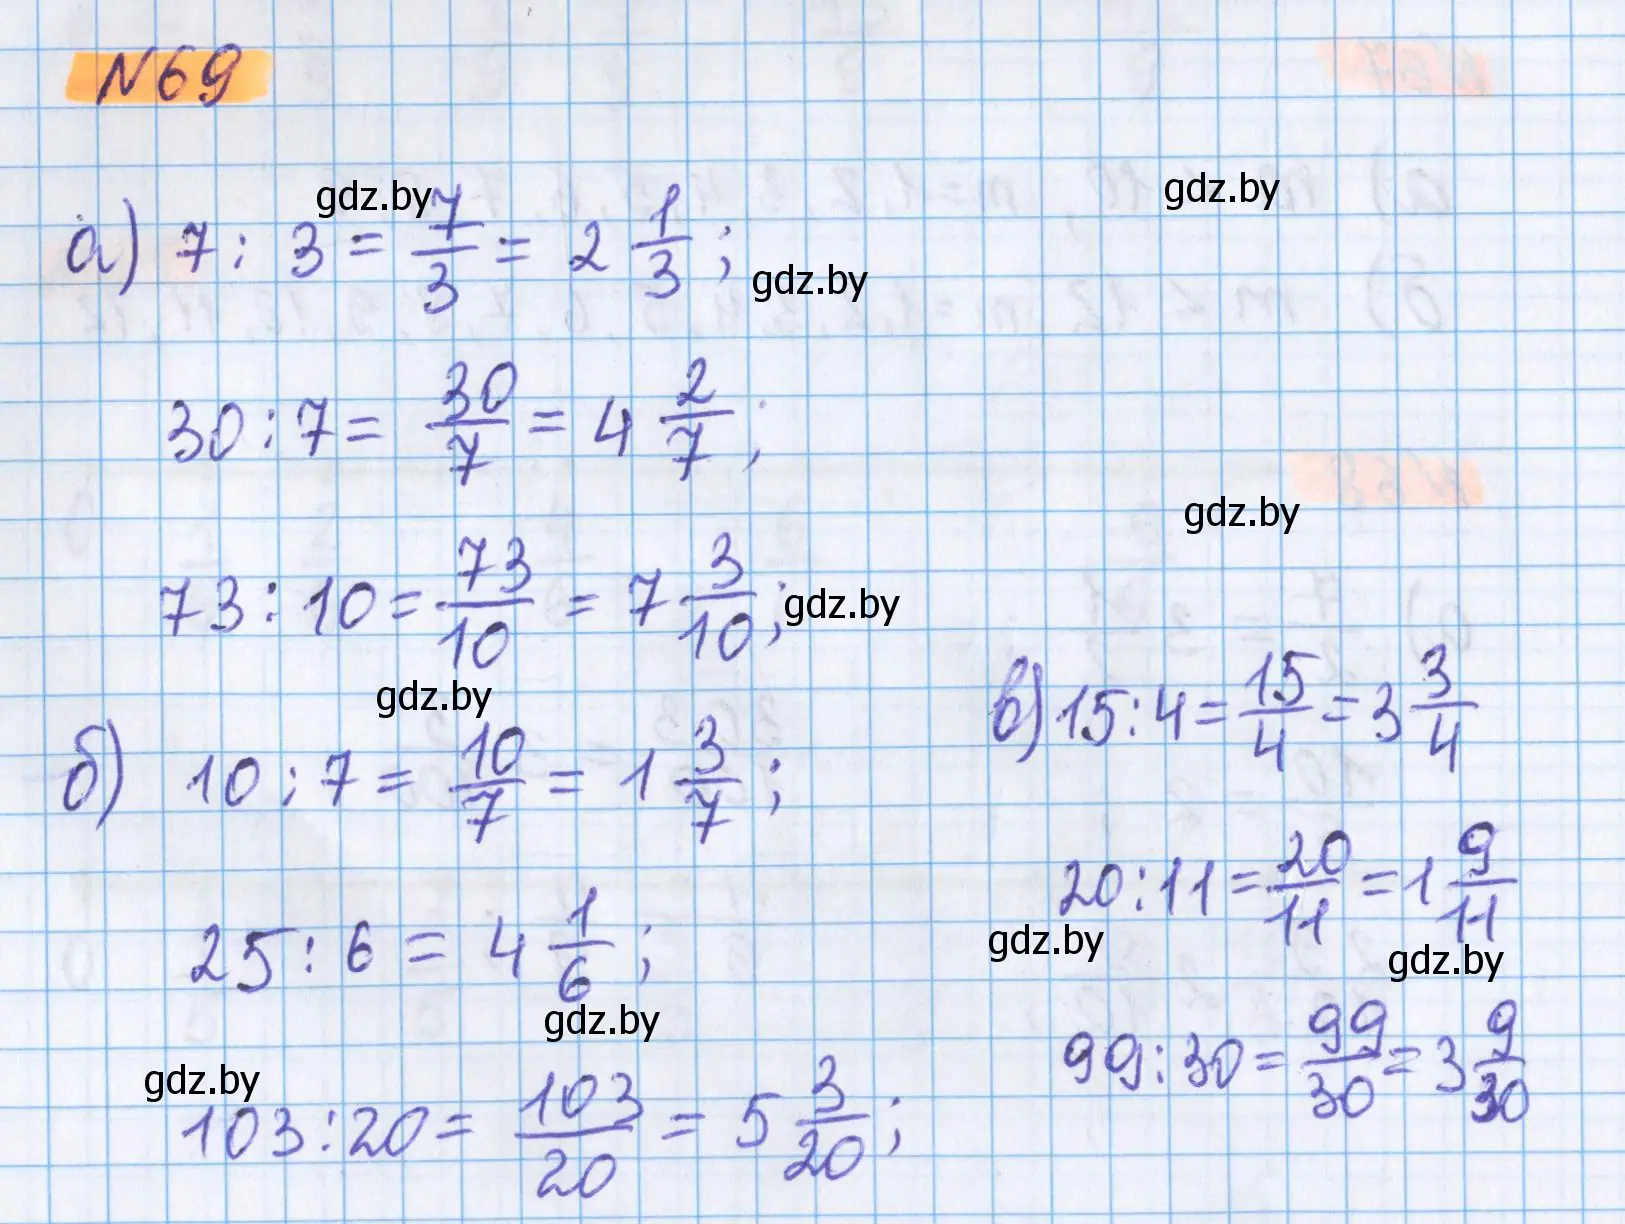 N69
gdz.by
gdz.by
а) 7 : 3 = 7/3 = 2 1/3 ;
gdz.by
30 : 7 = 30/7 = 4 2/7 ;
gdz.by
73 : 10 = 73/10 = 7 3/10 ;
gdz.by
gdz.by
б) 10 : 7 = 10/7 = 1 3/7 ;
25 : 6 = 4 1/6 ;
gdz.by
gdz.by
103 : 20 = 103/20 = 5 3/20 ;
в) 15 : 4 = 15/4 = 3 3/4
20 : 11 = 20/11 = 1 9/11
gdz.by
gdz.by
99 : 30 = 99/30 = 3 9/30